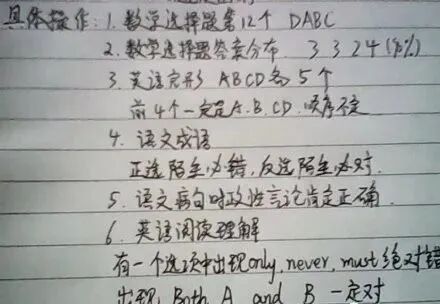 具体操作:1. 数学选择题第12个 DABC
2. 数学选择题答案分布 3 3 2 4 (90%)
3. 英语完形 ABCD各5个
前4个一定是A.B.CD.顺序不定
4. 语文成语
正选陌生必错,反选陌生必对.
5. 语文病句时政性言论肯定正确.
6. 英语阅读理解
有一个选项中出现only, never, must绝对错
出现 Both A and B 一定对